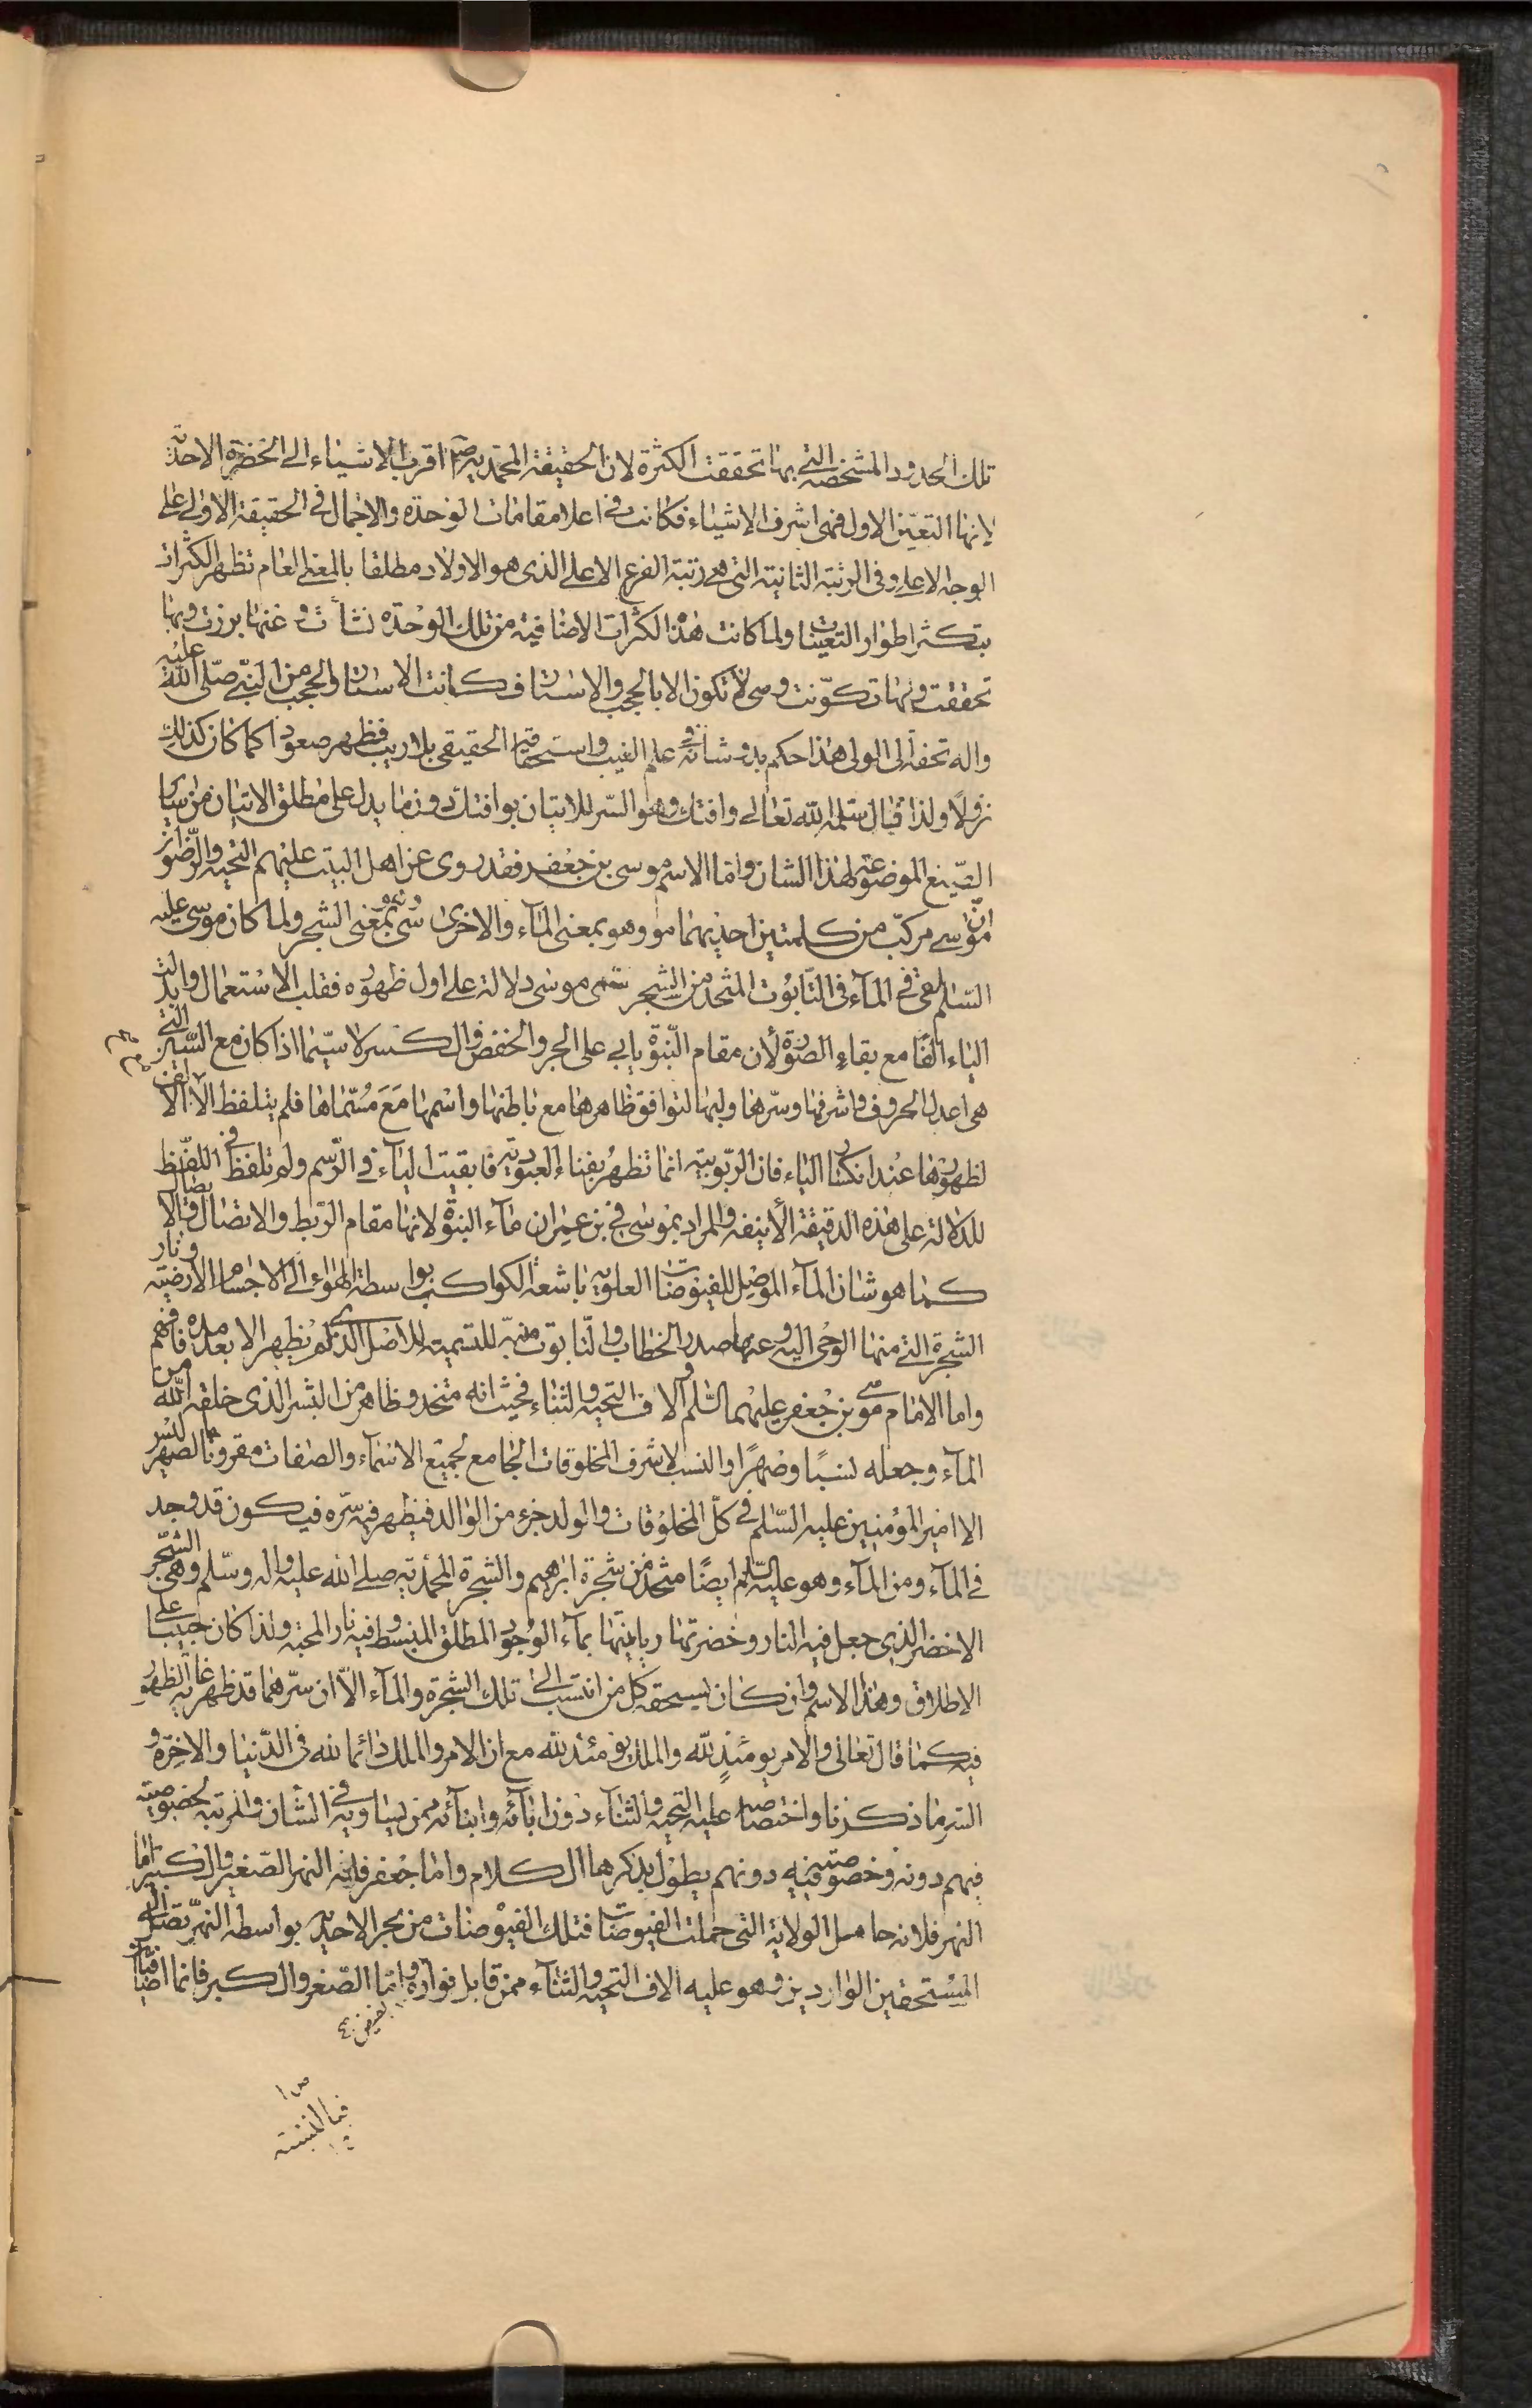 تلك الحدود المشخصة التي بها تحققت الكثرة لان الحقيقة المحمدية ص اقرب الاشياء الى الحضرة الاحدية
لانها التعين الاول فهى اشرف الاشياء فكانت فى اعلا مقامات الوحدة والاجمال فى الحقيقة الاولى على
الوجه الاعلى وفى الرتبة الثانية التى هى رتبة الفرع الاعلى الذى هو الاولاد مطلقا بالمعنى العام تظهر الكثرات
بتكثر اطوار التعينات ولما كانت هذه الكثرات الاضافية من تلك الوحدة نشأت وعنها برزت وبها
تحققت ومنها تكونت وهى لا تكون الا بالحجب والاستار فكانت الاستار والحجب من النبى صلى الله عليه
واله تحفة الى الولى هذا حكم بدو شأنه فى علم الغيب واستحقاقه الحقيقى بلا ريب فظهر صعودا كما كان كذلك
نزولًا ولذا قال سلمه الله تعالى وافتك وهو السر للاتيان بوافتك دون ما يدل على مطلق الاتيان من ساير
الصيغ الموضوعة لهذا الشان واما الاسم موسى بن جعفر فقد روى عن اهل البيت عليهم التحية والرضوان
ان موسى مركب من كلمتين احديهما مو وهو بمعنى المآء والاخرى سى وهو بمعنى الشجر ولما كان موسى عليه
السلم القى فى المآء فى التابوت المتخذ من الشجر سمى موسى دلالة على اول ظهوره فقلب الاستعمال وابدلت
الياء الفًا مع بقاء الصورة لأن مقام النبوة يابى على الجر والخفض والكسر لا سيما اذا كان مع السين التى
هى اعدل الحروف واشرفها وسرها ولبها لتوافق ظاهرها مع باطنها واسمها مَعَ مُسَمّاها فلم يتلفظ الا الالف
لظهورها عند انكسار الياء فان الربوبية انما تظهر بفناء العبودية فابقيت الياء فى الرسم ولم تلفظ فى اللفظ
للدلالة على هذه الدقيقة الأنيقة والمراد بموسى فى بن عمران مآء النبوة لانها مقام الربط والاتصال والايصال
كما هو شان المآء الموصل للفيوضات العلوية باشعة الكواكب بواسطة الهواء الى الاجسام الارضية ونار
الشجرة التى منها الوحى اليه وعنها صدر الخطاب والتابوت منبه للتسمية للاصل الذى لم يُظهر الا بعد مده فافهم
واما الامام موسى بن جعفر عليهما السلم والاف التحية والثناء فحيث انه متخذ وظاهر من البشر الذى خلقه الله من
المآء وجعله نسبًا وصهرًا والنسب لاشرف المخلوقات الجامع لجميع الاسمآء والصفات مقرونا بالصهر ليس
الا امير المؤمنين عليه السلم فى كل المخلوقات والولد جزء من الوالد فيظهر فيه سره فيكون قد وجد
فى المآء ومن المآء وهو عليه السلم ايضًا متخذ من شجرة ابرهيم والشجرة المحمدية صلى الله عليه واله وسلم وهى الشجر
الاخضر الذى جعل فيه النار وخضرتها ربا منها بمآء الوجود المطلق المنبسط وفيه نار المحبة ولذا كان حبيبا على
الاطلاق وهذا الاسم وان كان يستحقه كل من انتسب الى تلك الشجرة والمآء الا ان سرهما قد ظهر غاية الظهور
فيه كما قال تعالى والامر يومئذٍ لله والملك يومئذ لله مع ان الامر والملك دائما لله فى الدنيا والاخرة و
السر ما ذكرنا واختصاصه عليه التحية والثنآء دون ابآئه وابنآئه ممن يساويه فى الشأن والمرتبة لخصوصية
فيهم دونه وخصوصية فيه دونهم يطول بذكرها الكلام واما جعفر فانه النهر الصغير والكبير اما
النهر فلانه حامل الولاية التى حملت الفيوضات فتلك الفيوضات من بحر الاحدية بواسطة النهر تصل الى
المستحقين الواردين وهو عليه الاف التحية والثنآء ممن قابل فوارة واما الصغر والكبر فانما اضافيان
الفيض